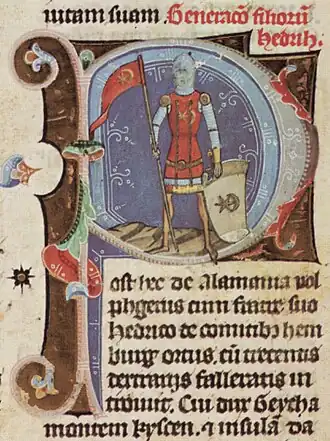 uitam suam. Generacō filiorū
hedrih.
Post hec de alamania uol
phgerus cum fratre suo
hedrico de comitibꝰ hem
burg ortus, cū trecentis
dextrarijs falleratis in
troiuit. Cui dux Geycha
montem kyscen, ⁊ insulā da